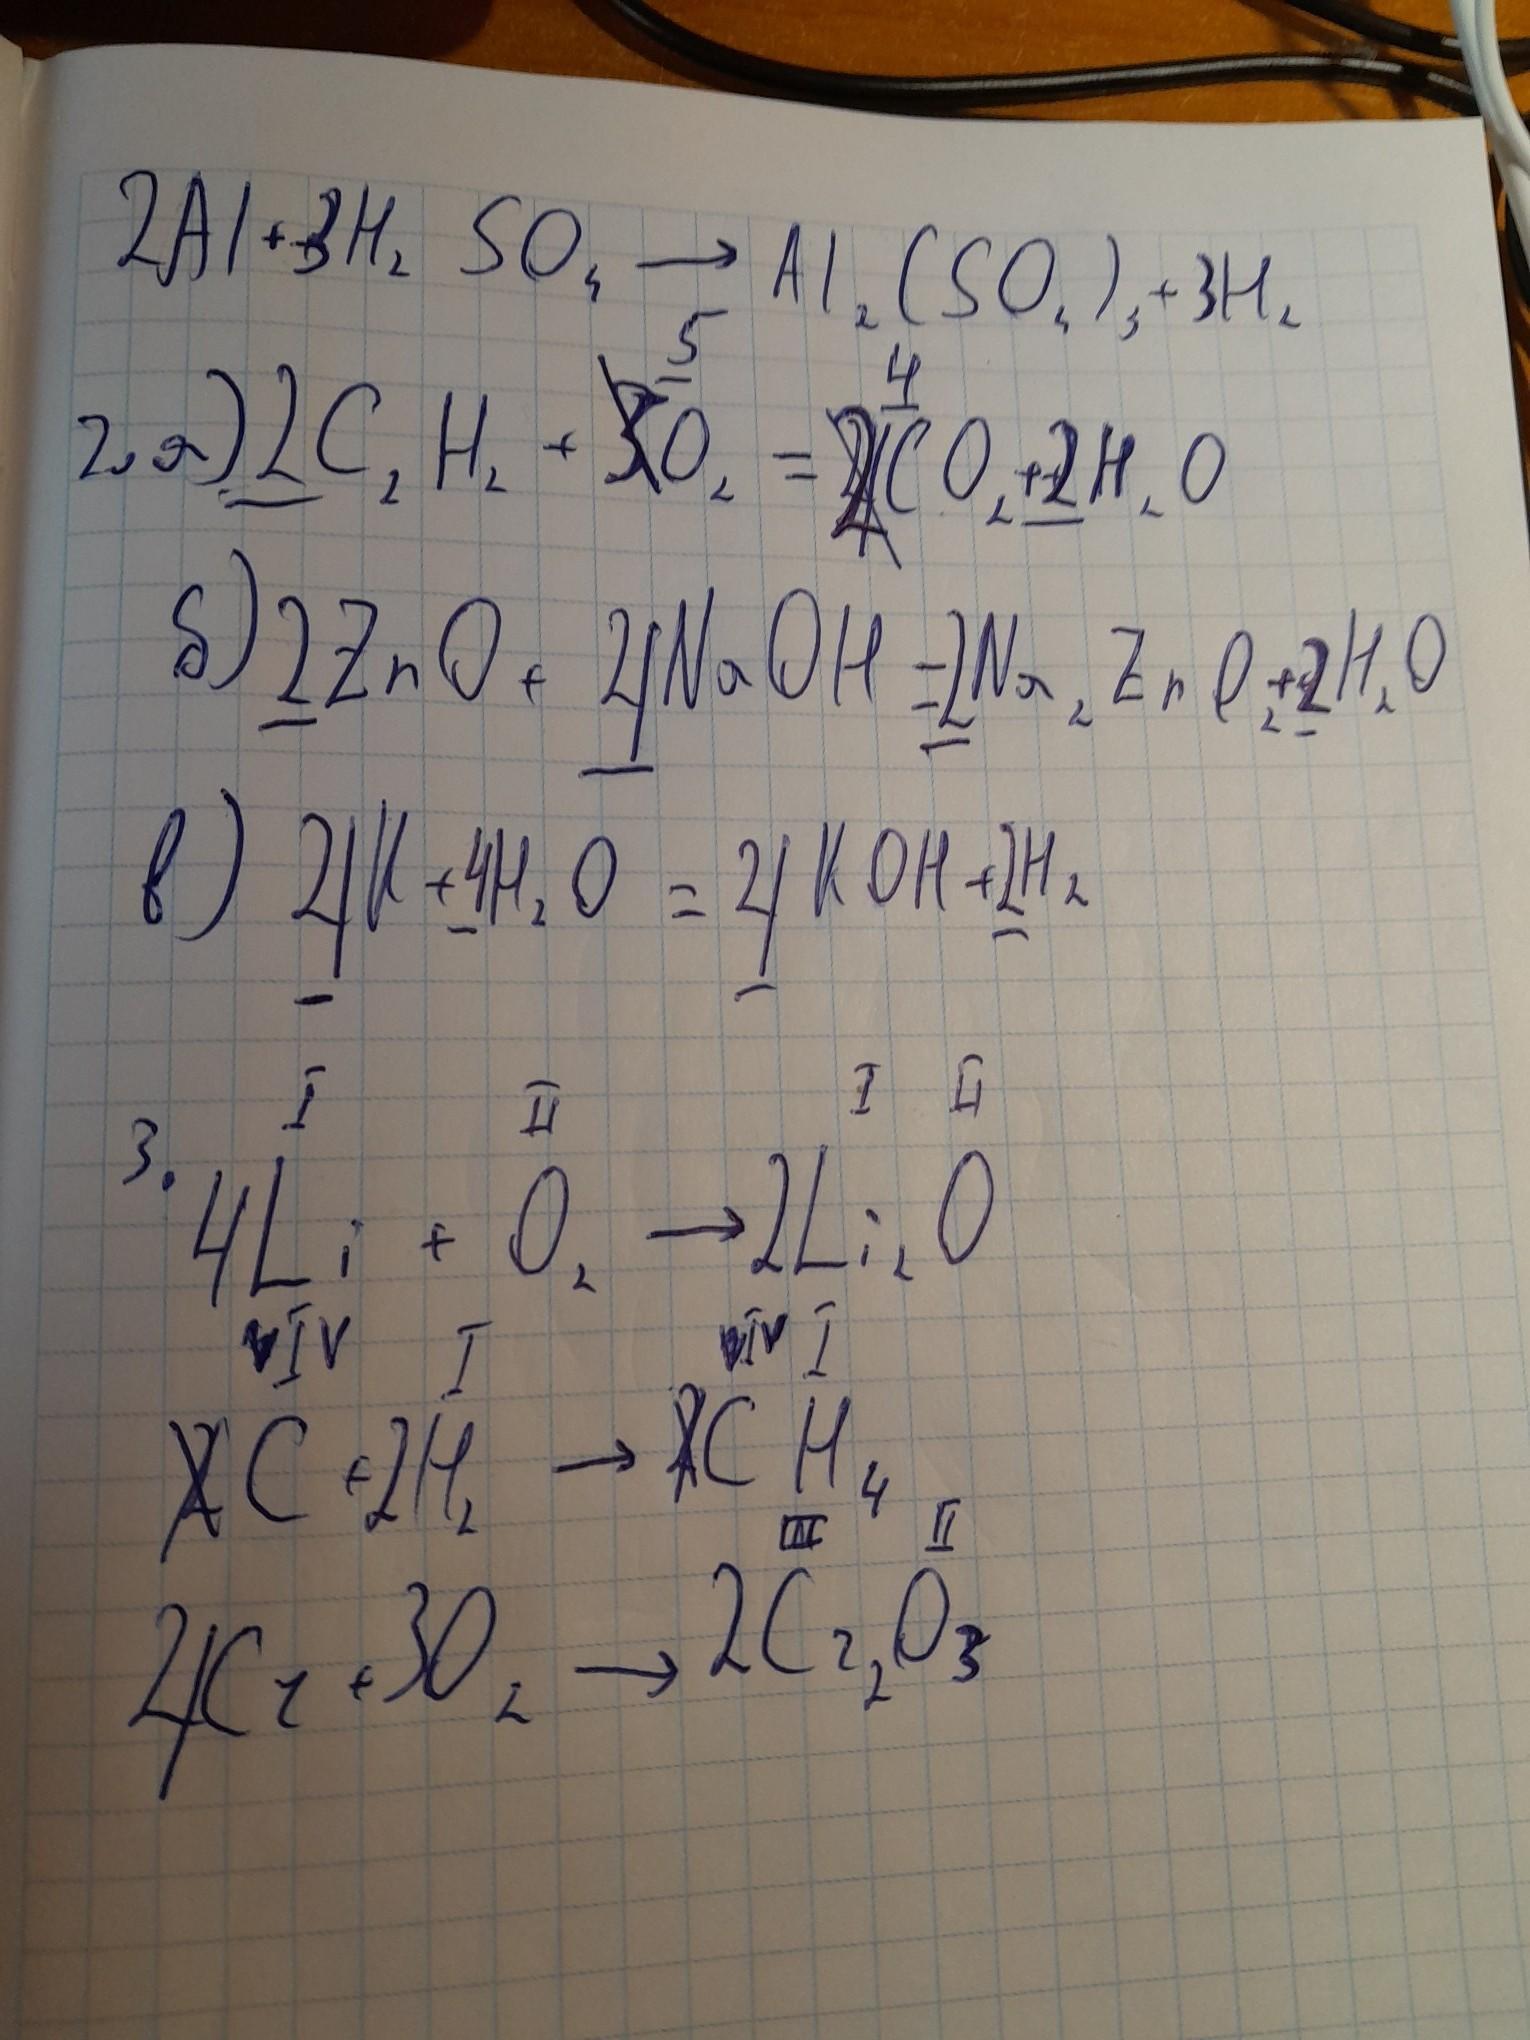 2Al + 3H₂SO₄ → Al₂(SO₄)₃ + 3H₂
2. а) 2C₂H₂ + 5O₂ = 4CO₂ + 2H₂O
б) 2ZnO + 4NaOH = 2Na₂ZnO₂ + 2H₂O
в) 4K + 4H₂O = 4KOH + 2H₂
I II I II
3. 4Li + O₂ → 2Li₂O
IV I IV I
C + 2H₂ → CH₄
III II
4Cr + 3O₂ → 2Cr₂O₃